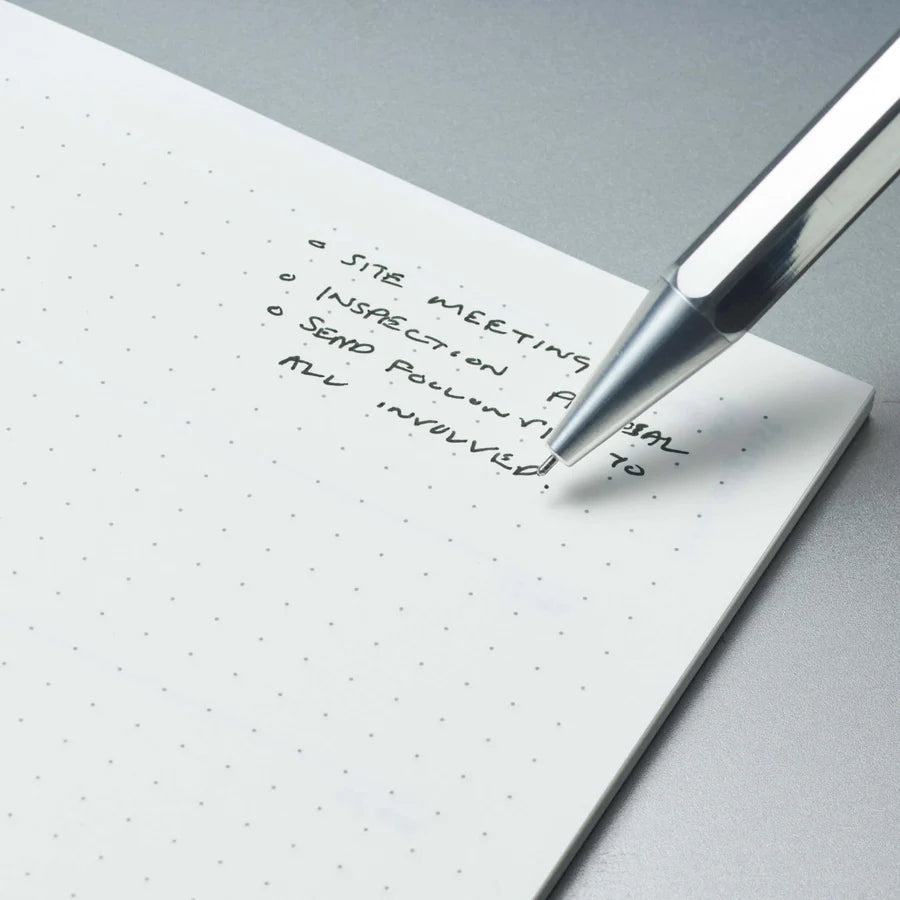 SITE MEETING
INSPECTION
SEND FOLLOW TO
ALL INVOLVED.